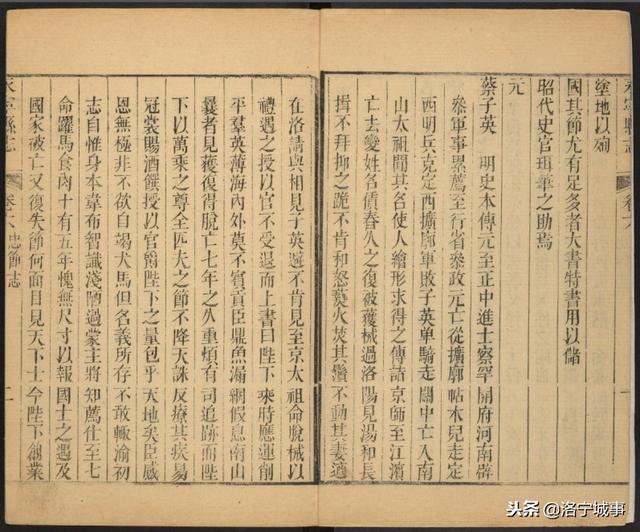 永寧縣志 卷六 一
塗地以殉
國其節尤有足多者大書特書用以儲
昭代史官珥華之助焉
元
蔡子英 明史本傳元至正中進士察罕開府河南辟
參軍事累薦至行省參政元亡從擴廓帖木兒走定
西明兵克定西擴廓軍敗子英單騎走關中亡入南
山太祖聞其名使人繪形求得之傳詣京師至江濱
亡去變姓名賃舂久之復被獲械過洛陽見湯和長
揖不拜抑之跪不肯和怒爇火焚其鬚不動其妻適
在洛請與相見子英避不肯見至京太祖命脫械以
禮遇之授以官不受退而上書曰陛下乘時應運削
平羣英薄海內外莫不賓貢臣鼎魚漏網假息南山
曩者見獲復得脫亡七年之久重煩有司追跡而陛
下以萬乘之尊全匹夫之節不降天誅反療其疾易
冠裳賜酒饌授以官爵陛下之量包乎天地矣臣感
恩無極非不欲自竭犬馬但名義所存不敢輒渝初
志自惟身本韋布智識淺陋過蒙主將知薦仕至七
命躍馬食肉十有五年愧無尺寸以報國士之遇及
國家破亡又復失節何面目見天下士今陛下創業
永寧縣志 卷六忠節志 二
头条 @洛宁城事